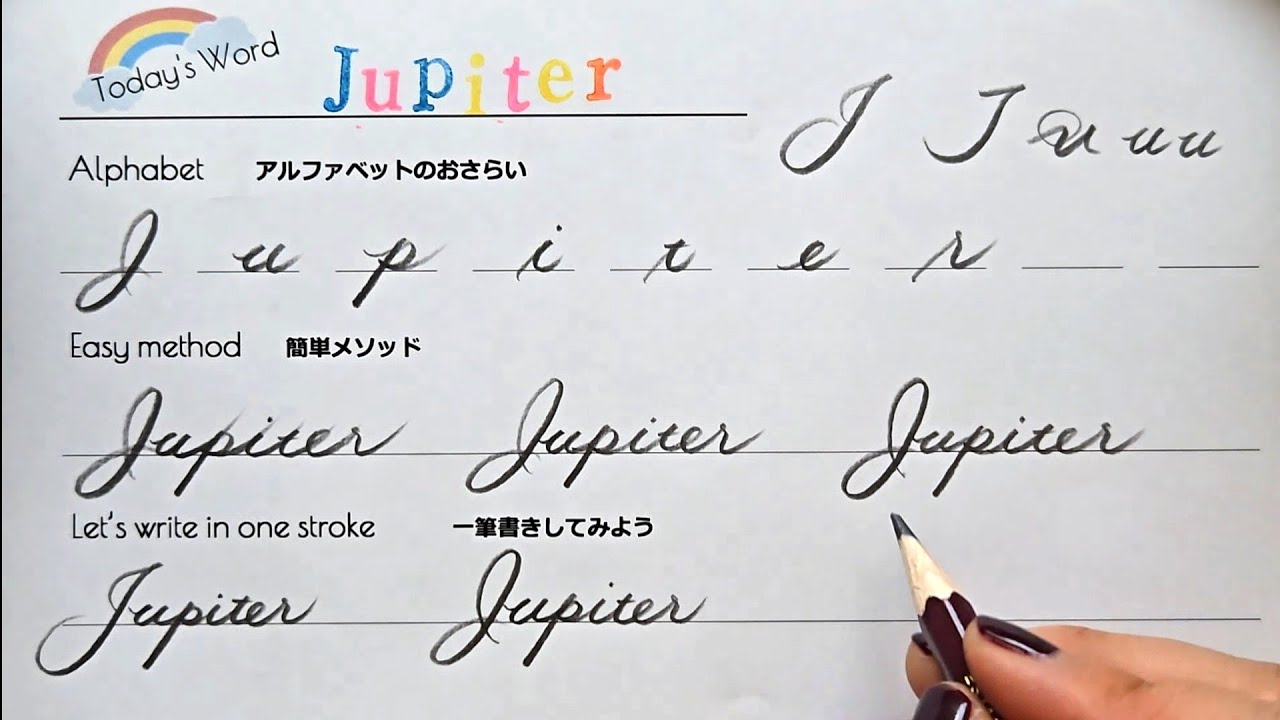 Today's Word Jupiter
J J u u u
Alphabet アルファベットのおさらい
J u p i t e r
Easy method 簡単メソッド
Jupiter Jupiter Jupiter
Let's write in one stroke 一筆書きしてみよう
Jupiter Jupiter